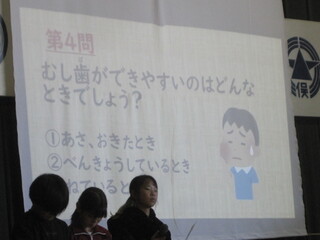 第4問
むし歯ができやすいのはどんな
ときでしょう?
①あさ、おきたとき
②べんきょうしているとき
ねていると
俣